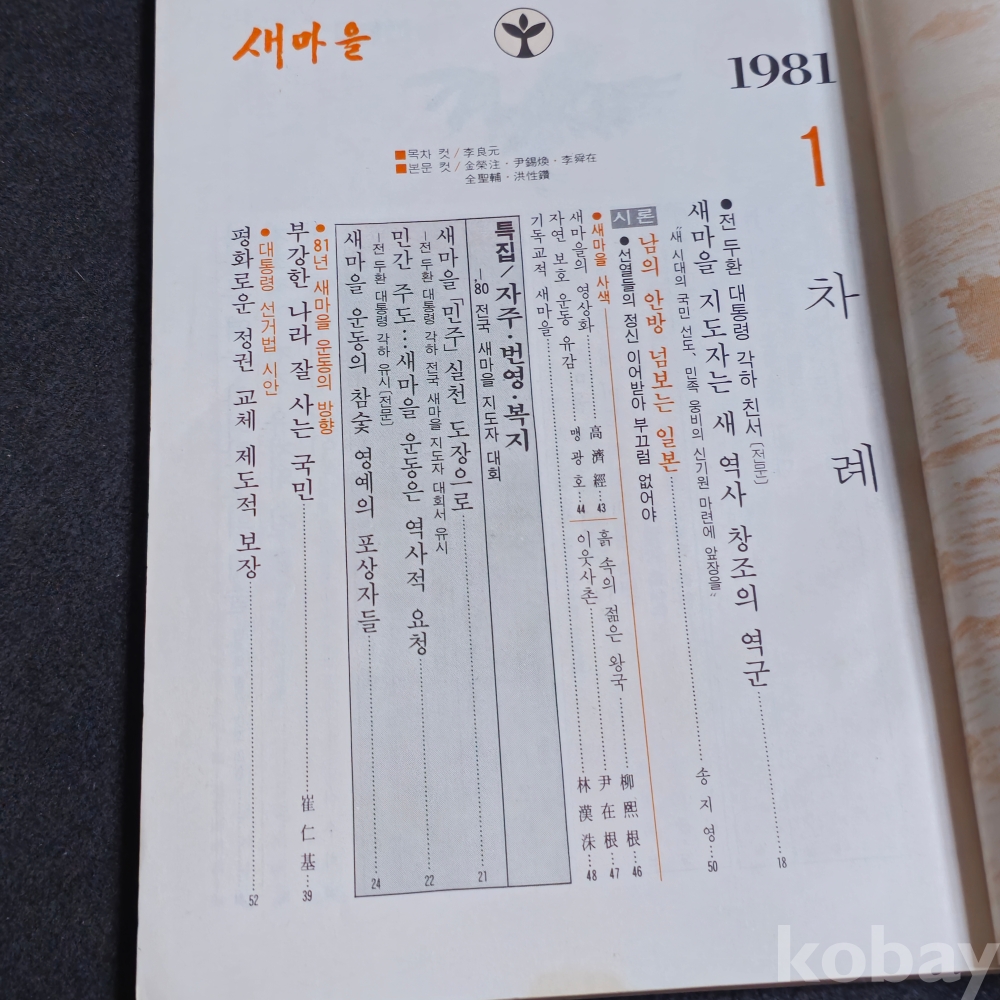 새마을
1981
1
차례
■목차 컷/李良元
■본문 컷/金榮注·尹錫煥·李舜在
全聖輔·洪性鑽
●전두환 대통령 각하 친서〔전문〕
새마을 지도자는 새 역사 창조의 역군……18
“새 시대의 국민 선도、민족 웅비의 신기원 마련에 앞장을”
시론
남의 안방 넘보는 일본……송지영…50
●선열들의 정신 이어받아 부끄럼 없어야
●새마을 사색
새마을의 영상화……高濟經…43
자연 보호 운동 유감……맹광호…44
기독교적 새마을……柳熙根…46
흙 속의 젊은 왕국……尹在根…47
이웃사촌……林漢洙…48
특집/자주·번영·복지
—80 전국 새마을 지도자 대회
새마을「민주」실천 도장으로……21
—전두환 대통령 각하 전국 새마을 지도자 대회서 유시
민간 주도…새마을 운동은 역사적 요청……22
—전두환 대통령 각하 유시〔전문〕
새마을 운동의 참숯 영예의 포상자들……24
●81년 새마을 운동의 방향
부강한 나라 잘 사는 국민……崔仁基…39
●대통령 선거법 시안
평화로운 정권 교체 제도적 보장……52
kobay